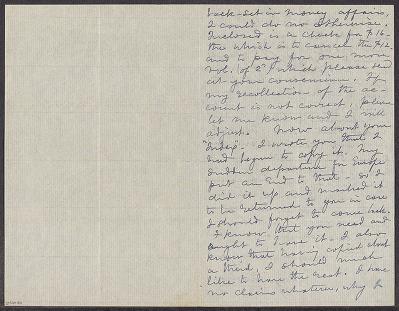 back-set in money affairs,
I could do no otherwise.
Inclosed is a check for $16-
the which is to cancel the $12-
and to pay for one more
vol. of 2d, which please send
at your convenience. If
my recollection of the ac-
count is not correct, please
let me know and I will
adjust. Now about your
I wrote you that I
had begun to copy it. My
sudden departure for Europe
put an end to that - so I
did it up and marked it
to be returned to you in case
I should forget to come back.
I know that you need and
ought to have it. I also
know that having copied about
a third, I should much
like to have the rest. I have
no claims whatever, why